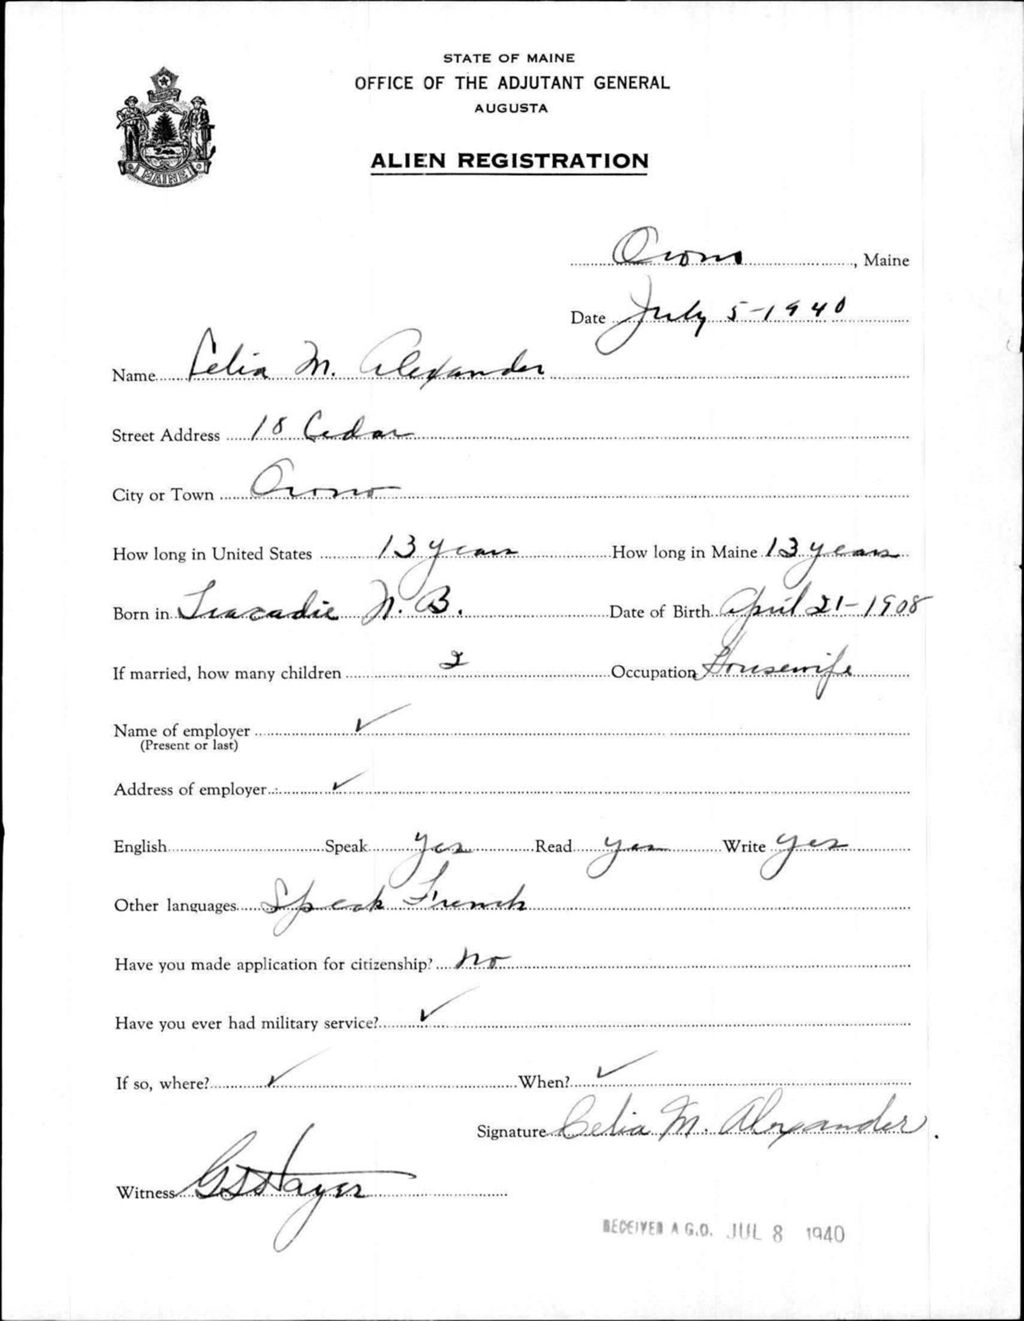 STATE OF MAINE
OFFICE OF THE ADJUTANT GENERAL
AUGUSTA
MAINE
ALIEN REGISTRATION
Orono, Maine
Date July 5-1940
Name Celia M. Alexander
Street Address 18 Cedar
City or Town Orono
How long in United States 13 years How long in Maine 13 years
Born in Tracadie N.B. Date of Birth April 21-1908
If married, how many children 2 Occupation Housewife
Name of employer ✓
(Present or last)
Address of employer ✓
English Speak yes Read yes Write yes
Other languages Speak French
Have you made application for citizenship? no
Have you ever had military service? ✓
If so, where? ✓ When? ✓
Signature Celia M. Alexander
Witness Hayes
RECEIVED A.G.O. JUL 8 1940